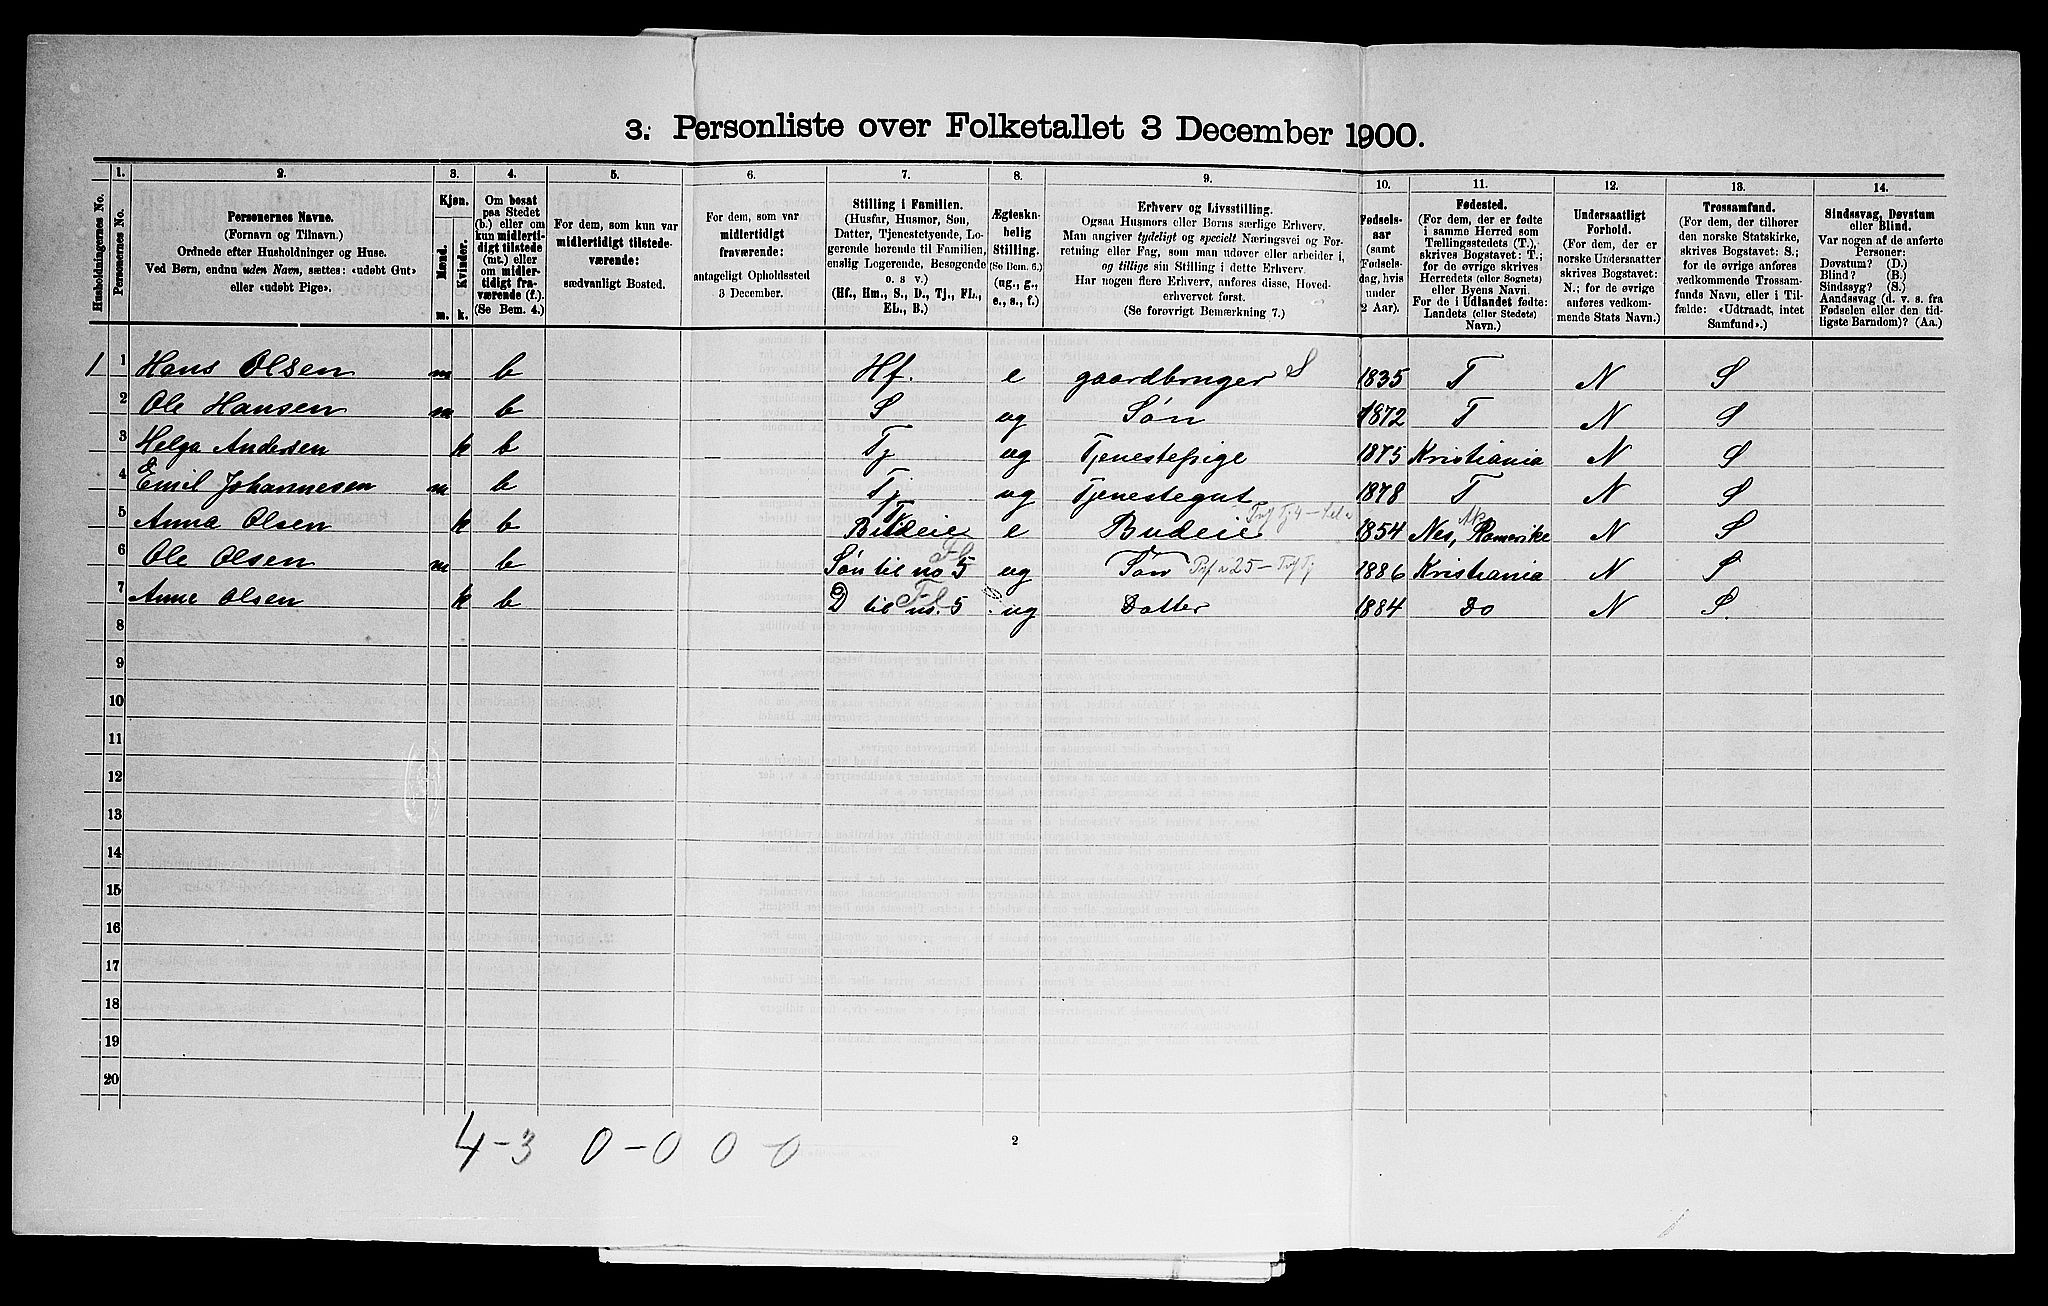 3. Personliste over Folketallet 3 December 1900.
1. 2. 3. 4. 5. 6. 7. 8. 9. 10. 11. 12. 13. 14.
Husholdningernes No.
Personernes No.
Personernes Navne.
(Fornavn og Tilnavn.)
Ordnede efter Husholdninger og Huse.
Ved Børn, endnu uden Navn, sættes: «udøbt Gut»
eller «udøbt Pige».
Kjøn.
Mænd.
Kvinder.
m. k.
Om bosat
paa Stedet
(b.) eller om
kun midlerti-
digt tilstede
(mt.) eller
om midler-
tidigt fra-
værende (f.).
(Se Bem. 4.)
For dem, som kun var
midlertidigt tilstede-
værende:
sædvanligt Bosted.
For dem, som var
midlertidigt
fraværende:
antageligt Opholdssted
3 December.
Stilling i Familien.
(Husfar, Husmor, Søn,
Datter, Tjenestetyende, Lo-
gerende hørende til Familien,
enslig Logerende, Besøgende
o. s v.)
(Hf., Hm., S., D., Tj., FL.,
EL., B.)
Ægteska-
belig
Stilling.
(Se Bem. 6.)
(ug., g.,
e., s., f.)
Erhverv og Livsstilling.
Ogsaa Husmors eller Børns særlige Erhverv.
Man angiver tydeligt og specielt Næringsvei og For-
retning eller Fag, som man udøver eller arbeider i,
og tillige sin Stilling i dette Erhverv.
Har nogen flere Erhverv, anføres disse, Hoved-
erhvervet først.
(Se forøvrigt Bemærkning 7.)
Fødsels-
aar
(samt
Fødsels-
dag, hvis
under
2 Aar).
Fødested.
(For dem, der er fødte
i samme Herred som
Tællingsstedets (T.),
skrives Bogstavet: T.;
for de øvrige skrives
Herredets (eller Sognets)
eller Byens Navn.
For de i Udlandet fødte:
Landets (eller Stedets)
Navn.)
Undersaatligt
Forhold.
(For dem, der er
norske Undersaatter
skrives Bogstavet:
N.; for de øvrige
anføres vedkom-
mende Stats Navn.)
Trossamfund.
(For dem, der tilhører
den norske Statskirke,
skrives Bogstavet: S.;
for de øvrige anføres
vedkommende Trossam-
funds Navn, eller i Til-
fælde: «Udtraadt, intet
Samfund».)
Sindssvag, Døvstum
eller Blind.
Var nogen af de anførte
Personer:
Døvstum? (D.)
Blind? (B.)
Sindssyg? (S.)
Aandssvag (d. v. s. fra
Fødselen eller den tid-
ligste Barndom)? (Aa.)
1 1 Hans Olsen m b Hf. e gaardbruger S 1835 T N S
2 Ole Hansen m b S ug Søn 1872 T N S
3 Helga Andersen k b Tj ug Tjenestepige 1875 Kristiania N S
4 Emil Johannesen m b Tj ug Tjenestegut 1878 T N S
5 Anna Olsen k b Tj Budeie e Budeie 1854 Nes, Ak. Romerike N S
6 Ole Olsen m b Søn til no 5 FL ug Søn 1886 Kristiania N S
7 Anne Olsen k b D til no. 5 FL ug Datter 1884 Do N S.
8
9
10
11
12
13
14
15
16
17
18
19
20
4-3 0-0 0-0
2